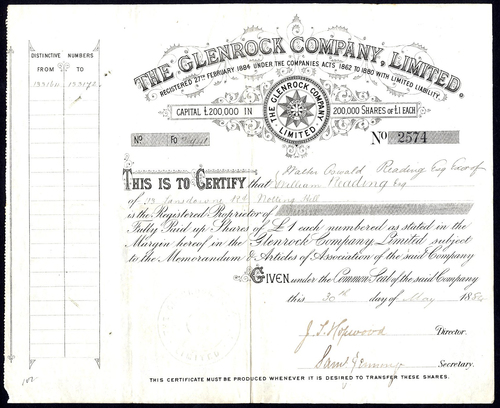 DISTINCTIVE NUMBERS
FROM TO
THE GLENROCK COMPANY, LIMITED.
REGISTERED 27TH FEBRUARY 1884 UNDER THE COMPANIES ACTS, 1862 TO 1880 WITH LIMITED LIABILITY.
CAPITAL £200,000 IN
THE GLENROCK COMPANY LIMITED.
200,000 SHARES OF £1 EACH
No Fo
No 2574
Walter Oswald Reading Esq Exor of
THIS IS TO CERTIFY that William Reading Esq
of Lansdowne Rd Notting Hill
is the Registered Proprietor of
Fully Paid up Shares of £1 each numbered as stated in the
Margin hereof in the Glenrock Company Limited subject
to the Memorandum & Articles of Association of the said Company
GIVEN under the Common Seal of the said Company
this 30th day of May 188
J. S. Hopwood Director.
Saml Jennings Secretary.
THIS CERTIFICATE MUST BE PRODUCED WHENEVER IT IS DESIRED TO TRANSFER THESE SHARES.